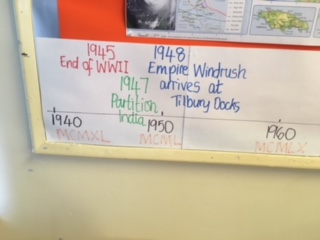 1945
End of WWII
1948
Empire Windrush
arrives at
Tilbury Docks
1947
Partition
India
1940
MCMXL
1950
MCML
1960
MCMLX